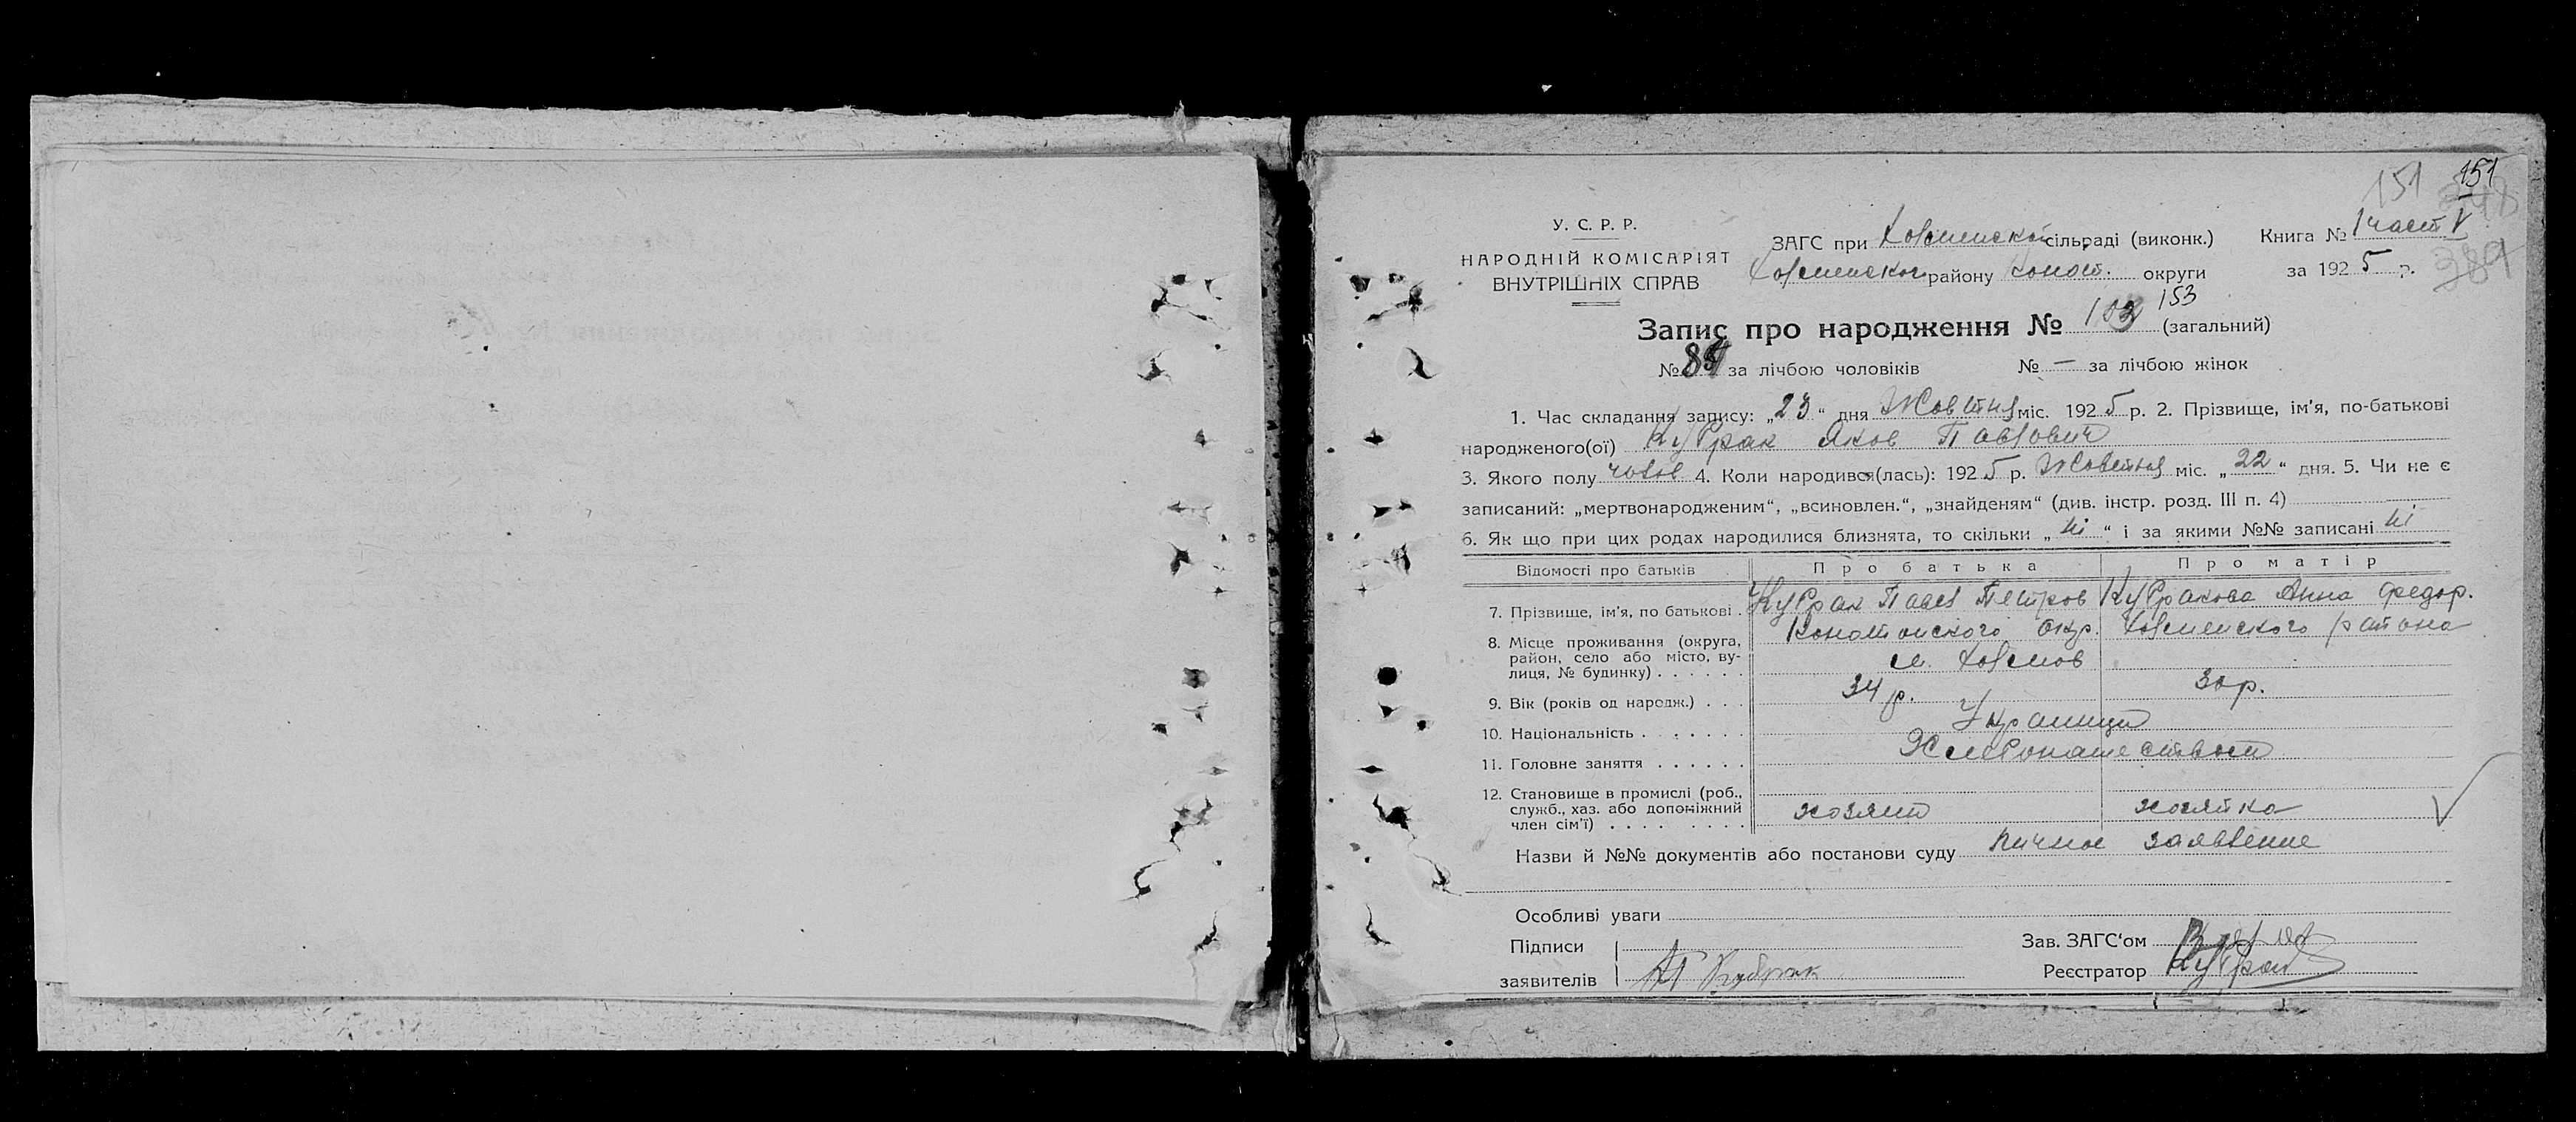 151 151
У. С. Р. Р.
НАРОДНІЙ КОМІСАРІЯТ
ВНУТРІШНІХ СПРАВ
ЗАГС при Холменской сільраді (виконк.) Книга № 1 част V
Холменског району Конот. округи за 1925 р.
389
153
Запис про народження № 103 (загальний)
№ 84 за лічбою чоловіків № — за лічбою жінок
1. Час складання запису: „23“ дня Жовтня міс. 1925 р. 2. Прізвище, ім'я, по-батькові
народженого(ої) Кубрак Яков Павлович
3. Якого полу чолов 4. Коли народився(лась): 1925 р. Жовтня міс. „22“ дня. 5. Чи не є
записаний: „мертвонародженим“, „всиновлен.“, „знайденям“ (див. інстр. розд. III п. 4)
6. Як що при цих родах народилися близнята, то скільки „ні“ і за якими №№ записані ні
Відомості про батьків Про батька Про матір
7. Прізвище, ім'я, по батькові Кубрак Павел Петров Кубракова Анна Федор.
8. Місце проживання (округа, район, село або місто, вулиця, № будинку) Конотопского Окр. Холменского района
м. Холмов
9. Вік (років од народж.) 34 р. 30 р.
10. Національність Украинци
11. Головне заняття Хлебопашеством
12. Становище в промислі (роб., служб., хаз. або допоміжний член сім'ї) хозяин хозяйка
Назви й №№ документів або постанови суду Личное заявление
Особливі уваги
Підписи
заявителів Кубрак
Зав. ЗАГС'ом
Реєстратор Кубрак